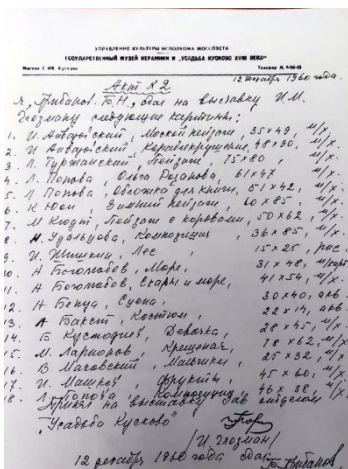 УПРАВЛЕНИЕ КУЛЬТУРЫ ИСПОЛКОМА МОССОВЕТА
ГОСУДАРСТВЕННЫЙ МУЗЕЙ КЕРАМИКИ И „УСАДЬБА КУСКОВО XVIII ВЕКА"
Москва Кусково Телефон
Акт №2
12 декабря 1960 года.
Я, Грибанов Б.Н., сдал на выставку И.М.
Глозману следующие картины:
1. И Айвазовский, Морской пейзаж, 35×49, м/х.
2. И Айвазовский, Кораблекрушение, 48×30, м/х.
3. Л. Туржанский, Пейзаж, 75×80 м/х.
4. Л. Попова, Ольга Розанова, 61×47 м/х.
5. Л Попова, Обложка для книги, 51×42, м/х.
6. К Юон Зимний пейзаж, 60×85, м/х.
7. М Кюдт, Пейзаж с коровами, 50×62, м/х.
8. Н. Удальцова, Композиция 36×85, м/х.
9. И. Шишкин, Лес, 15×25, рис.
10. А Боголюбов, Море, 31×48, м/карт
11. А Боголюбов, Скалы и море, 41×54, м/х.
12. А Бенуа, Сцена, 30×40, акв.
13. А Бакст, Костюм, 22×14, акв.
14. Б Кустодиев, Девочка, 28×45, м/х.
15. М. Ларионов, Крещение, 78×62, м/х.
16. В Маковский, Мальчики, 25×32, м/х.
17. И. Машков, Фрукты, 45×60, м/х.
18. Л. Попова, Композиция, 46×38, м/х.
Принял на выставку зав отделом
„Усадьба Кусково"
/И. Глозман/
12 декабря 1960 года сдал Б. Грибанов